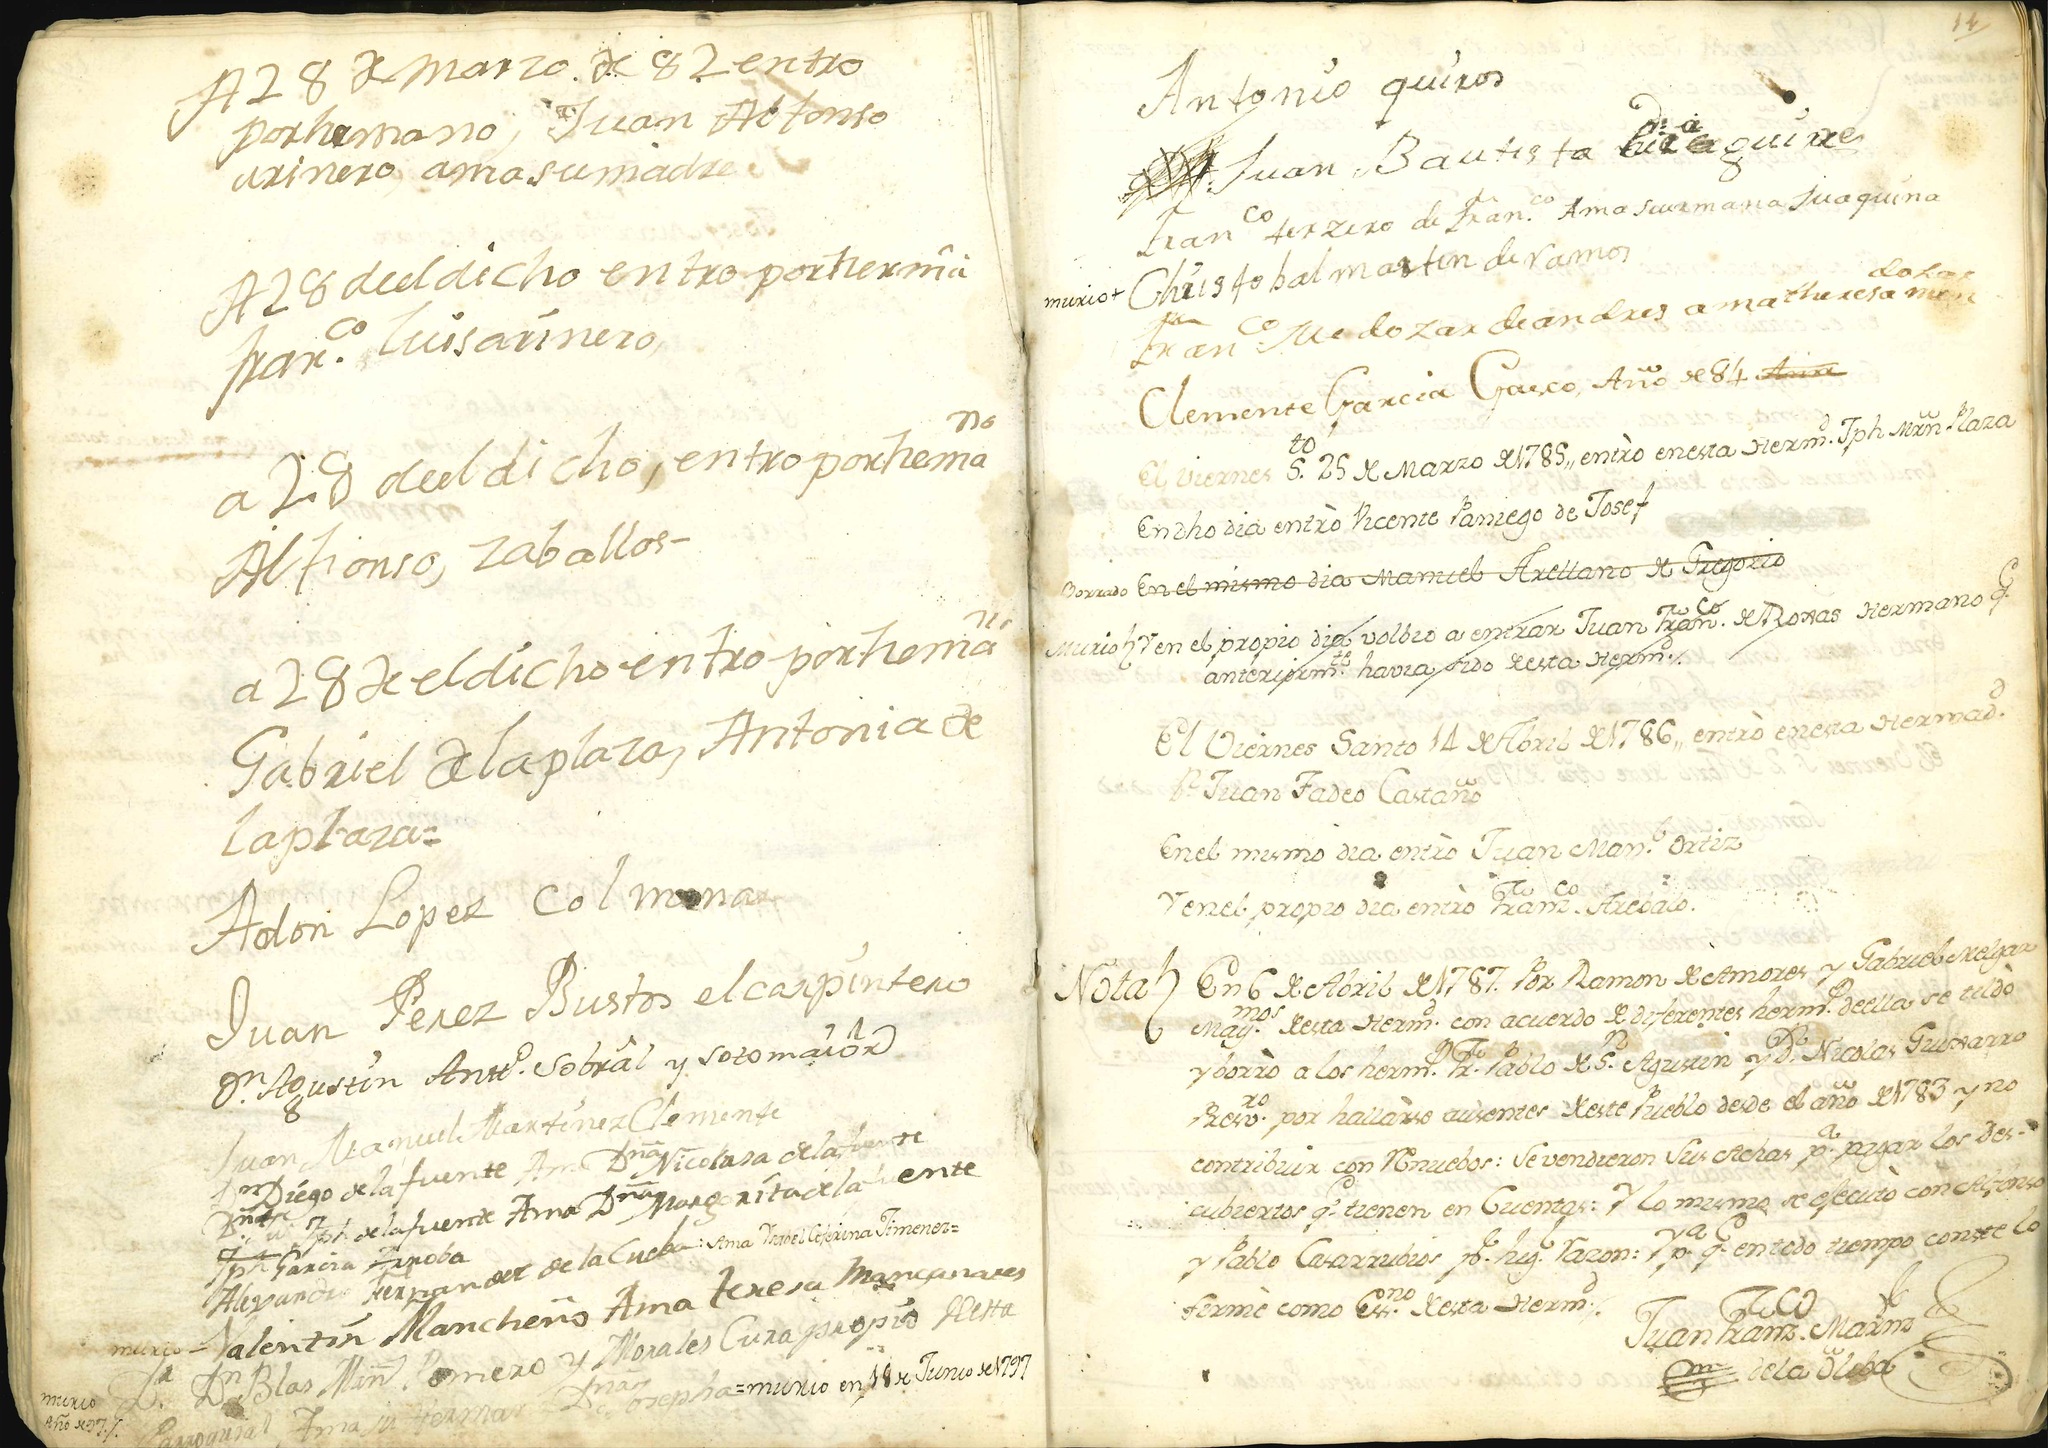 A 28 de Marzo. de 82 entro
por hermano, Juan Alfonso
urinero ama su madre
A 28 deel dicho entro por herma
Fran.co luis arinero,
no
a 28 deel dicho, entro por hema
Alfonso, zaballos-
no
a 28 de el dicho entro por hema
Gabriel de la plaza, Antonia de
la plaza=
Adon Lopez Colmena
Juan Perez Bustos el carpintero
Dn. Agustin Anto. Sobral y Sotomaior
Juan Manuel Martinez Clemente
Dn Diego de la fuente Ama Dña Nicolasa de la fuente
Jph. de la fuente Ama Dña Margarita de la fuente
Jph Garcia Arroba
Alexandro Fernandez de la Cueba: Ama Ysabel Ceferina Jimenez=
murio - Valentin Mancheño Ama teresa Mançanares
Dn Blas Mñ Romero y Morales Cura propio desta
murio
Año de 97./.
Parroquial, Ama su hermana Dña Josepha = murio en 18 de Junio de 1797
14
Antonio quiros
Juan Bautista de aguirre
Franco terzero de Fran.co Ama su ermana Juaquina
murio + Christobal martin de ramos
dozar
Franco Me dozar de andres ama theresa men
Clemente Garcia Gasco, Año de 84
El Viernes S.to 25 de Marzo de 1785,, entrò en esta Herm.d Jph Mrñ. Plaza
En dho dia entrò Vicente Paniego de Josef
Borrado En el mismo dia Manuel Arellano de Gregorio
Murio Y en el propio dia volbio a entrar Juan Fran.co de Rosas Hermano q.
anteriorm.te havia sido desta Herm.d/.
El Viernes Santo 14 de Abril de 1786,, entrò en esta Hermad.d
Juan Tadeo Castaño
En el mismo dia entrò Juan Man.l Ortiz
Y en el propio dia entrò Franco. Arebalo.
Nota En 6 de Abril de 1787. Por Ramon de Amores y Gabriel Melgar
May.mos desta Herm.d con acuerdo de diferentes herm.s de ella se tildò
y borrò a los herm.s Fr. Pablo de S.n Agustin y D.n Nicolas Guixarro
Presv.ro por hallarse ausentes deste Pueblo desde el año de 1783 y no
contribuir con Renuebos: Se vendieron sus Achas p.a pagar los Des-
cubiertos q.e tienen en Cuentas: Y lo mismo se efectuò con Alfonso
y Pablo Casarrubios p.r la misma razon: Y p.a q.e en todo tiempo conste lo
fermè como Ess.no desta Herm.d/.
Juan Franco. Marñz
de la Oliba